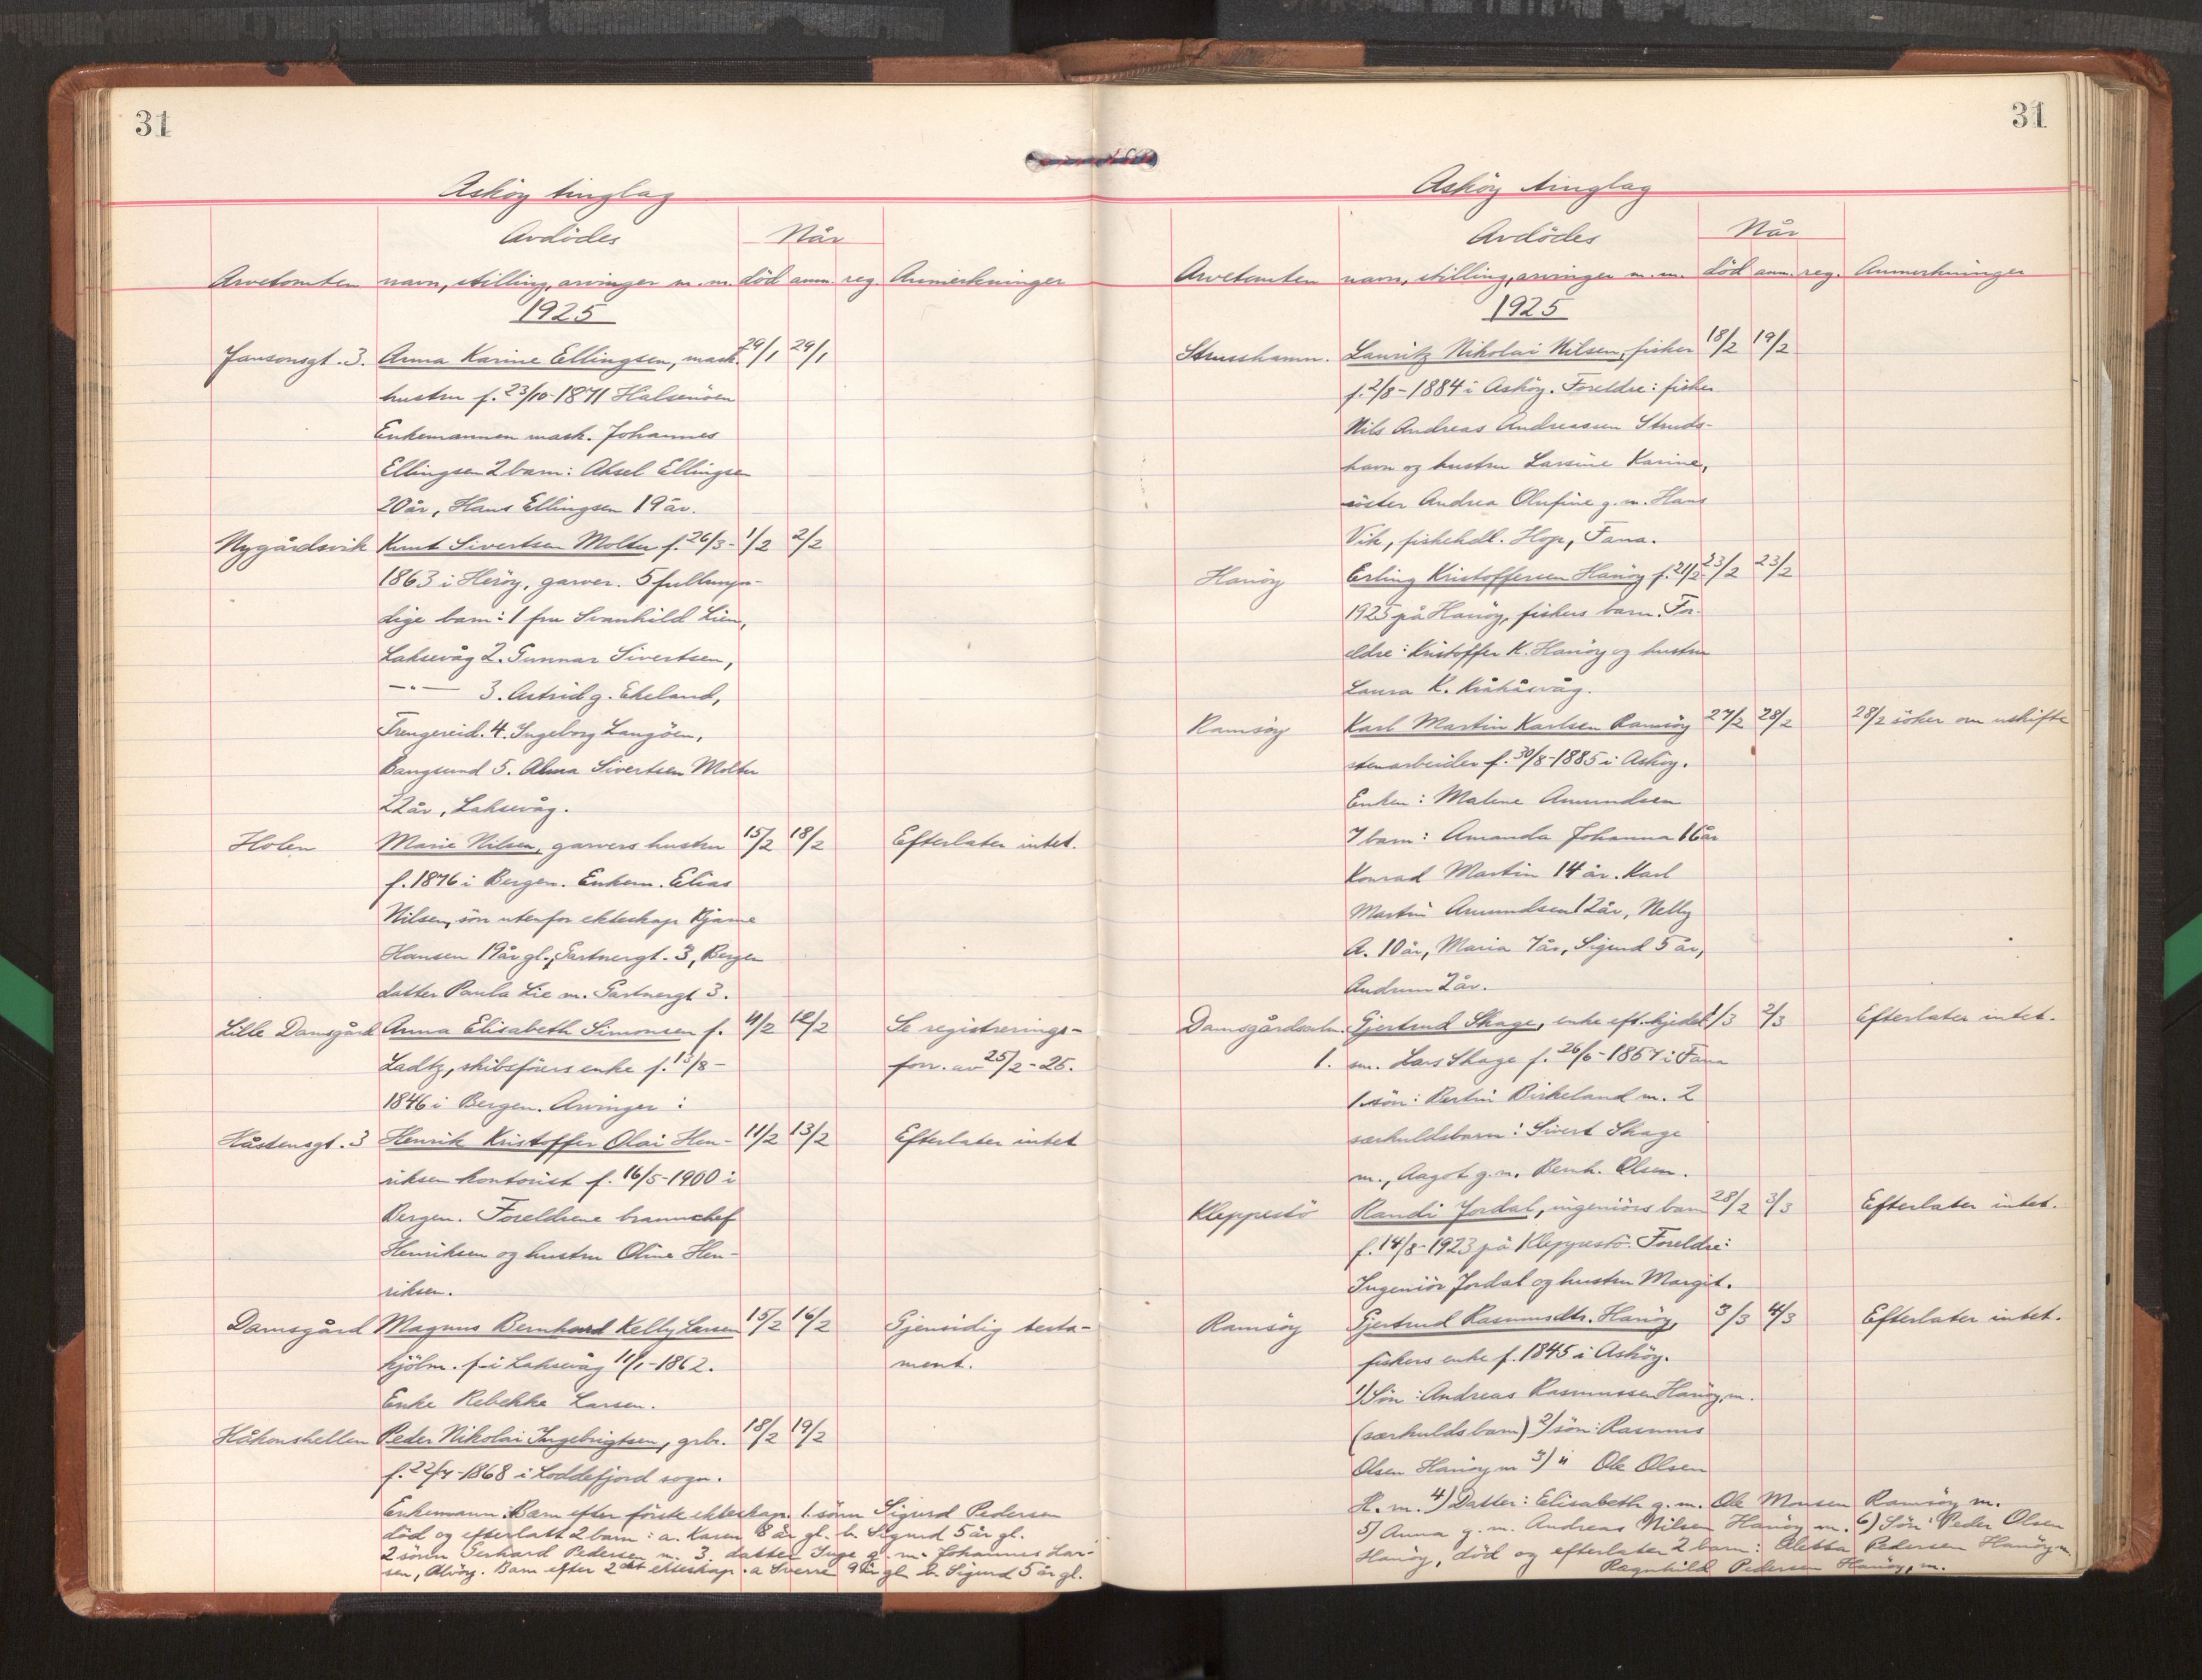 31
Asköy tinglag
Avdödes
Når
Arvetomten navn, stilling, arvinger m.m. död anm. reg. Anmerkninger
1925
Jansonsgt. 3. Anna Karine Ellingsen, mask. 29/1 29/1
hustru f. 23/10-1871 Halsenöen
Enkemannen mask. Johannes
Ellingsen 2 barn: Aksel Ellingsen
20 år, Hans Ellingsen 19 år.
Nygårdsvik Knut Sivertsen Moltu f. 26/3- 1/2 2/2
1863 i Heröy, garver. 5 fullmyn-
dige barn: 1 fru Svanhild Lien,
Laksevåg 2. Gunnar Sivertsen,
—"— 3. Astrid g. Ekeland,
Trengereid. 4. Ingeborg Langöen,
Bangsund 5. Alma Sivertsen Moltu
22 år, Laksevåg.
Holen Marie Nilsen, garvers hustru 15/2 18/2 Efterlater intet.
f. 1876 i Bergen. Enkem. Elias
Nilsen, sön utenfor ekteskap Bjarne
Hansen 19 år gl., Gartnergt. 3, Bergen
datter Paula Lie m. Gartnergt 3.
Lille Damsgård Anna Elisabeth Simonsen f. 11/2 12/2 Se registrerings-
Ladtz, skibsförers enke f. 13/8- forr. av 25/2-25.
1846 i Bergen. Arvinger:
Håstensgt. 3 Henrik Kristoffer Olai Hen- 11/2 13/2 Efterlater intet
riksen kontorist f. 16/5-1900 i
Bergen. Foreldrene brannchef
Henriksen og hustru Oline Hen-
riksen.
Damsgård Magnus Bernhard Kelly Larsen 15/2 16/2 Gjensidig testa-
kjölm. f. i Laksevåg 11/1-1862. ment.
Enke Rebekka Larsen.
Håkonshellen Peder Nikolai Ingebrigtsen, grbr. 18/2 19/2
f. 22/4-1868 i Loddefjord sogn.
Enkemann. Barn efter förste ekteskap. 1. sönn Sigurd Pedersen
död og efterlatt 2 barn: a. Karen 8 år gl. b. Sigurd 5 år gl.
2 sönn Gerhard Pedersen m. 3. datter Inge g. m. Johannes Lar-
sen, Alvöy. Barn efter 2det ekteskap. a Sverre 9 år gl b. Sigurd 5 år gl.
31
Asköy tinglag
Avdödes
Når
Arvetomten navn, stilling, arvinger m.m. död anm. reg. Anmerkninger
1925
Strusshamn. Lauritz Nikolai Nilsen, fisker 18/2 19/2
f. 2/8-1884 i Asköy. Foreldre: fisker
Nils Andreas Andreassen Struds-
havn og hustru Larsine Karine,
söster Andrea Olufine g. m. Hans
Vik, fiskehdl. Hop, Fana.
Hanöy Erling Kristoffersen Hanöy f. 21/2- 23/2 23/2
1925 på Hanöy, fiskers barn. For-
eldre: Kristoffer K. Hanöy og hustru
Laura K. Kråkåsvåg.
Ramsöy Karl Martin Karlsen Ramsöy 27/2 28/2 28/2 söker om uskifte
stenarbeider f. 30/8-1885 i Asköy.
Enken: Malene Amundsen
7 barn: Amanda Johanna 16 år
Konrad Martin 14 år. Karl
Martin Amundsen 12 år, Nelly
A. 10 år, Maria 7 år, Sigurd 5 år,
Andrum 2 år.
Damsgårdsalm. Gjertrud Skage, enke eft. kjedel 1/3 2/3 Efterlater intet.
1. sm. Lars Skage f. 26/6-1857 i Fana
1. sön: Bertin Birkeland m. 2
særkuldsbarn: Sivert Skage
m., Aagot g. m. Bernh. Olsen.
Kleppestö Randi Jordal, ingeniörs barn 28/2 3/3 Efterlater intet.
f. 14/8-1923 på Kleppestö. Foreldre:
Ingeniör Jordal og hustru Margit.
Ramsöy Gjertrud Rasmusdtr. Hanöy, 3/3 4/3 Efterlater intet.
fiskers enke f. 1845 i Asköy.
1) Sön: Andreas Rasmussen Hanöy, m.
(særkuldsbarn) 2) sön: Rasmus
Olsen Hanöy m 3) " Ole Olsen
H. m. 4) Datter: Elisabeth g. m. Ole Monsen Ramsöy m.
5) Anna g. m. Andreas Nilsen Hanöy m. 6) Sön: Peder Olsen
Hanöy, död og efterlater 2 barn: Pedersen Hanöy m.
Ragnhild Pedersen Hanöy, m.